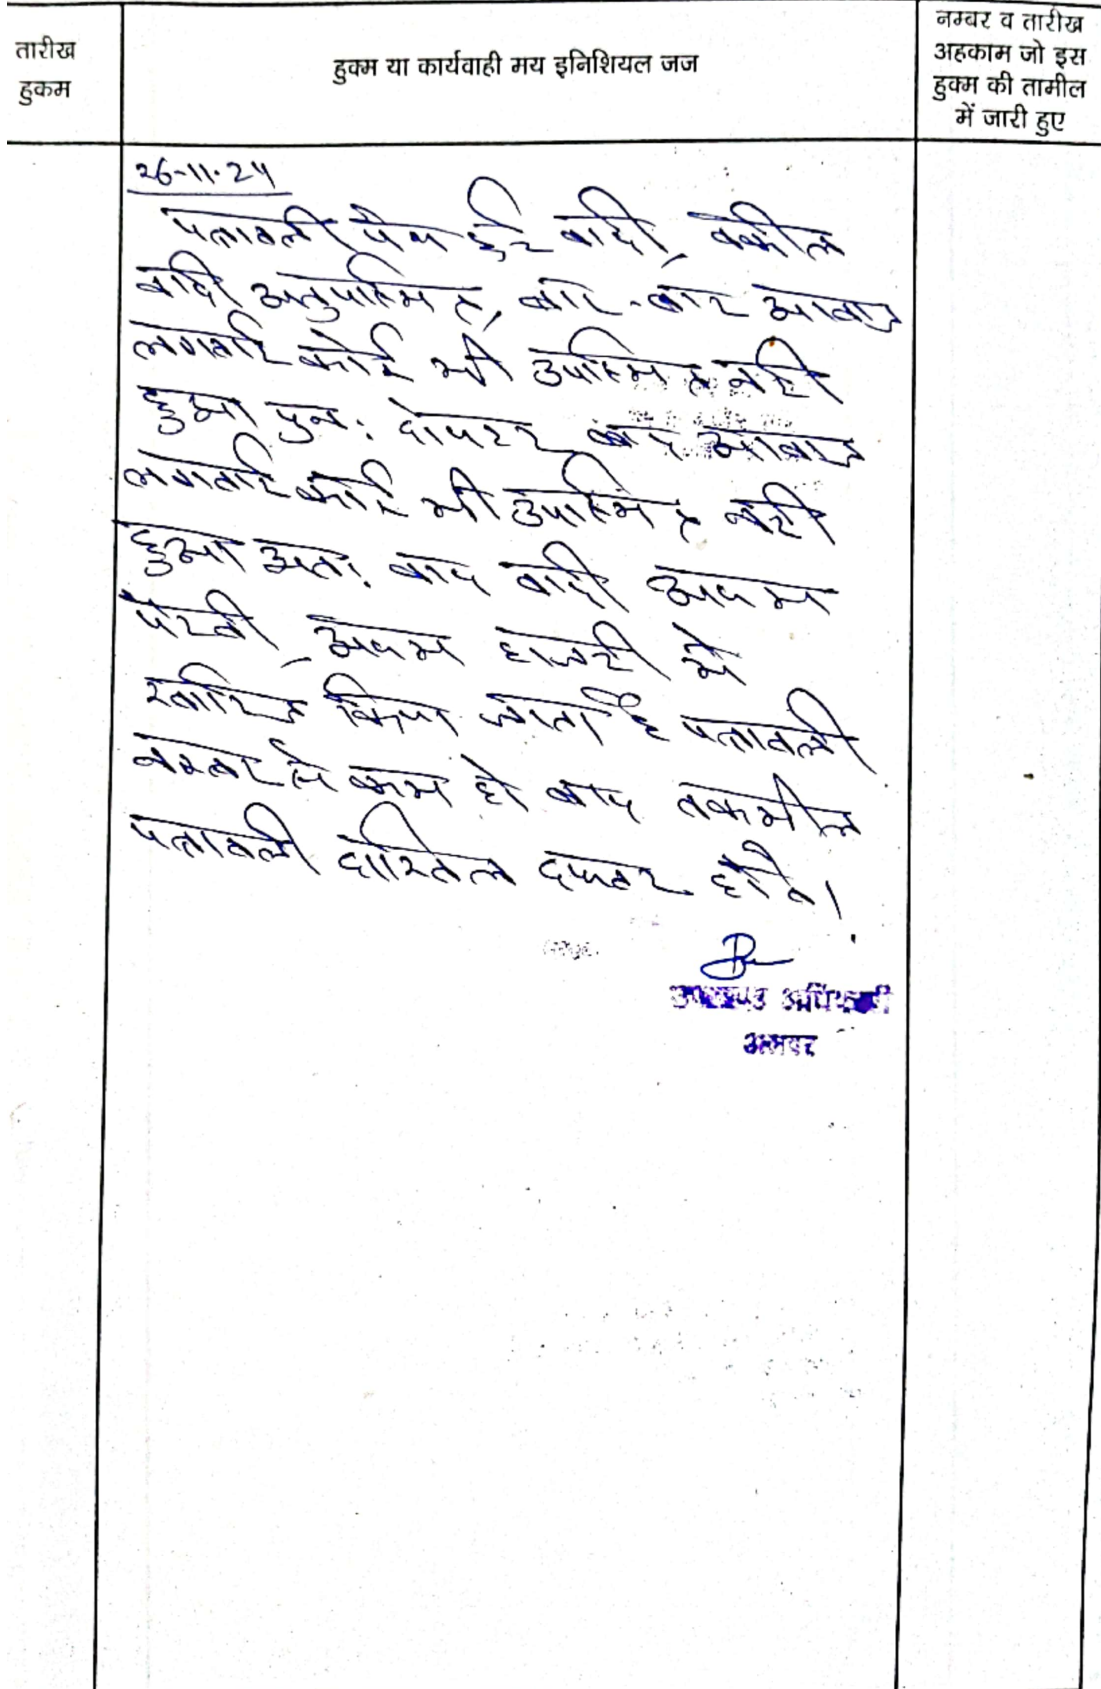 तारीख
हुकम
हुक्म या कार्यवाही मय इनिशियल जज
नम्बर व तारीख
अहकाम जो इस
हुक्म की तामील
में जारी हुए
26-11-24
पत्रावली पेश हुई वादी, वकील
वादी अनुपस्थित, बार-बार आवाज
लगवाई कोई भी उपस्थित नही
हुआ पुनः दोपहर बाद आवाज
लगवाई कोई भी उपस्थित नही
हुआ अतः वाद वादी अदम
पैरवी, अदम हाजरी मे
खारिज किया जाता है पत्रावली
नम्बर से कम हो बाद तकमील
पत्रावली दाखिल दफ्तर होवे।
उपखण्ड अधिकारी
अलवर